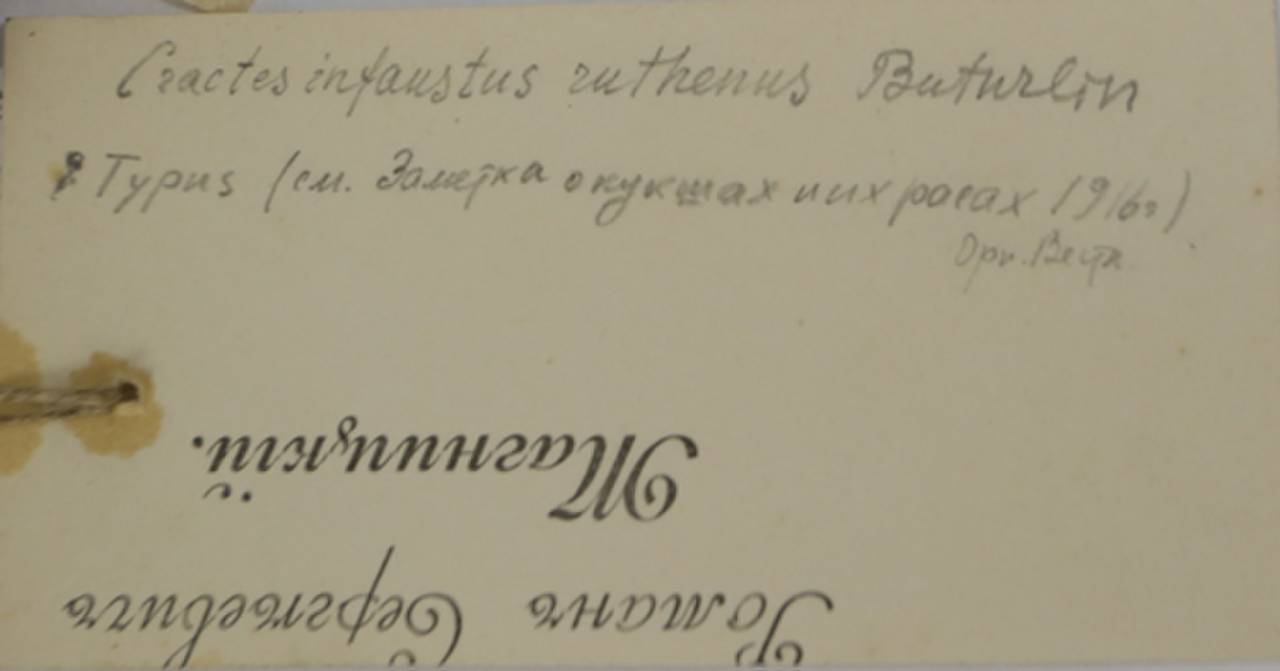 Cractes infaustus ruthenus Buturlin
♀ Typus (см. Заметка о кукшах и их расах 1916г)
Орн. Вестн.
Романъ Сергѣевичъ
Магницкій.